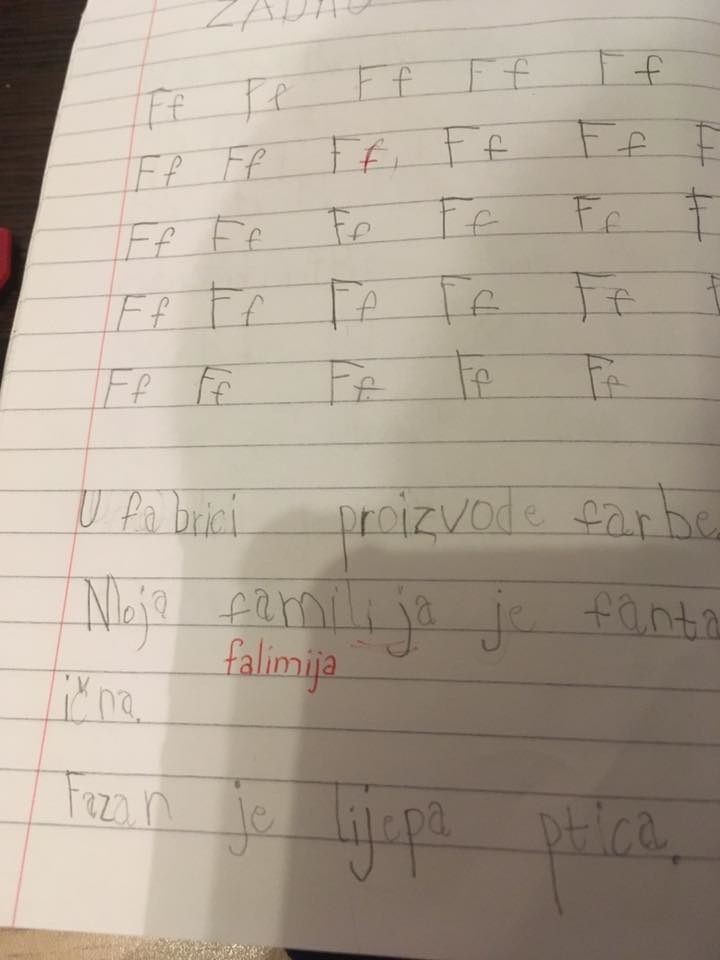 Ff Ff Ff Ff Ff
Ff Ff Ff, Ff Ff F
Ff Ff Ff Ff Ff F
Ff Ff Ff Ff Ff
Ff Ff Ff Ff Ff
U fabrici proizvode farbe
Moja familija je fanta
falimija
ična.
Fazan je lijepa ptica.